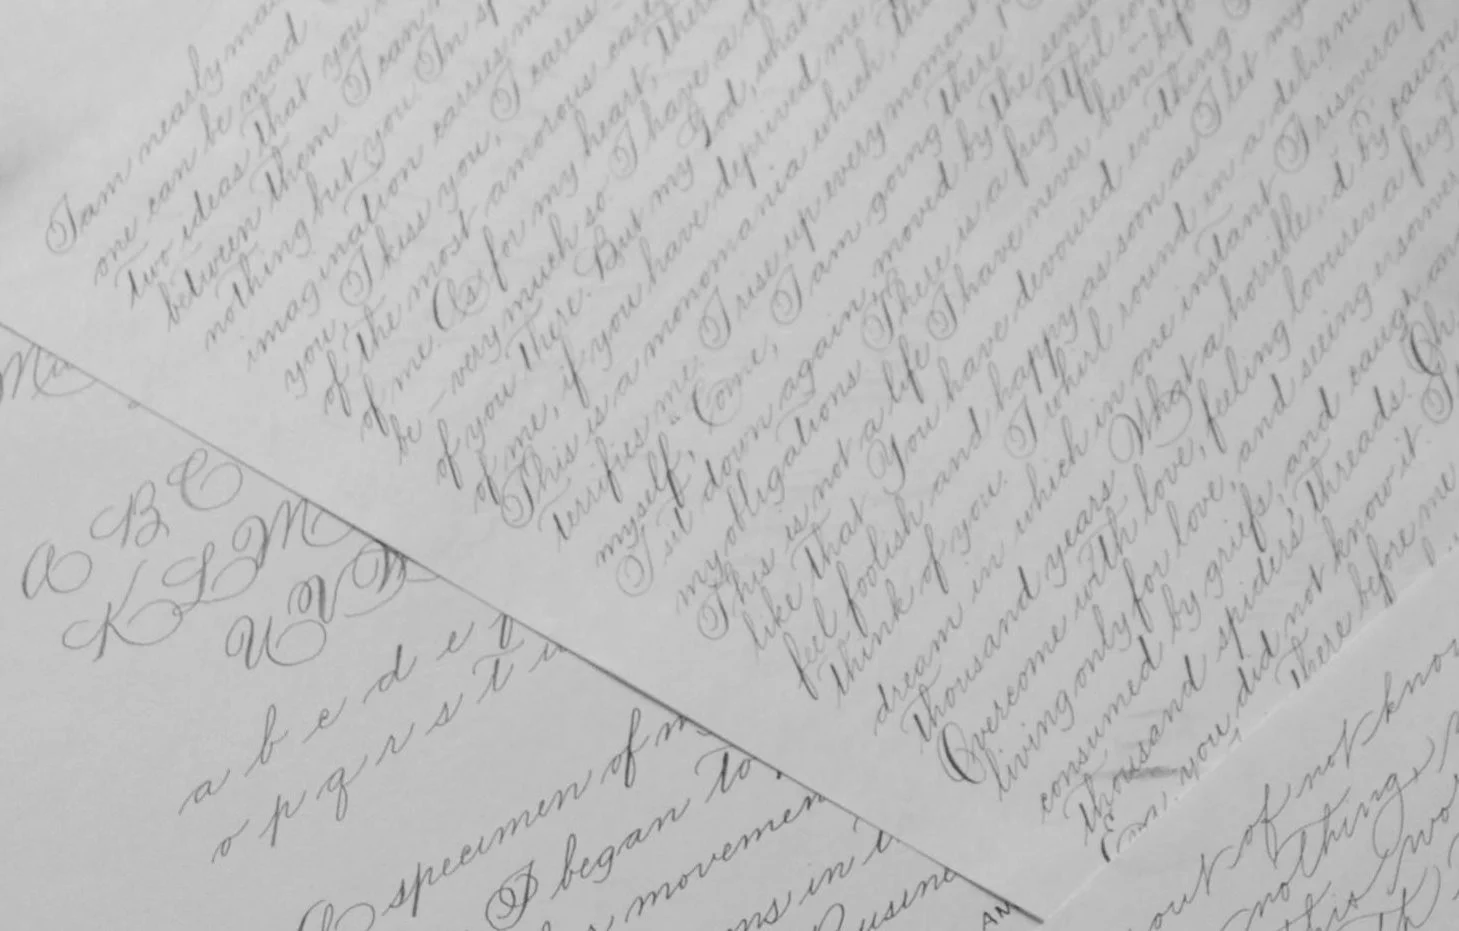 I am nearly mad
one can be mad
two ideas that you
between them. I can
nothing but you. In sp
imagination carries me
you, I kiss you, I caress
of the most amorous care
of me. As for my heart, there
be – very much so. I have a de
of you there. But my God, what
of me, if you have deprived me
This is a monomania which, th
terrifies me. I rise up every moment
myself, "Come, I am going there
I sit down again, moved by the sense
my obligations There is a frightful con
This is not a life I have never been befo
like that You have devoured everything
feel foolish and happy as soon as I let my
think of you. I whirl round in a delicious
dream in which in one instant I
thousand years What a horrible
Overcome with love, feeling love
living only for love, and seeing
consumed by griefs, and caught
thousand spiders' threads. Oh
you did not know it. I
there before me
A B C
K L M
U V W
a b c d e f
o p q r s t u
A specimen of m
I began to
movemen
ons in
Busine
AN
out of not know
nothing,
this wo